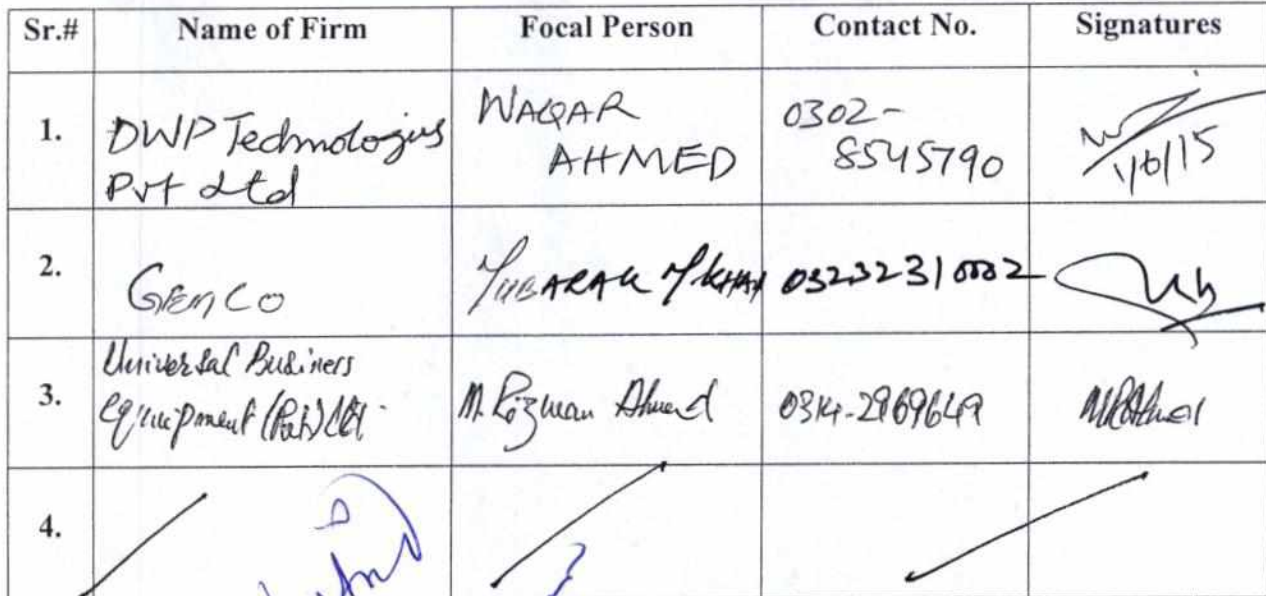 Sr.# Name of Firm Focal Person Contact No. Signatures
1. DWP Technologies Pvt Ltd WAQAR AHMED 0302-8545790 1/6/15
2. GEMCO MUBARAK M KHAN 03232310002
3. Universal Business Equipment (Pvt) Ltd. M. Rizwan Ahmed 0314-2969649
4.